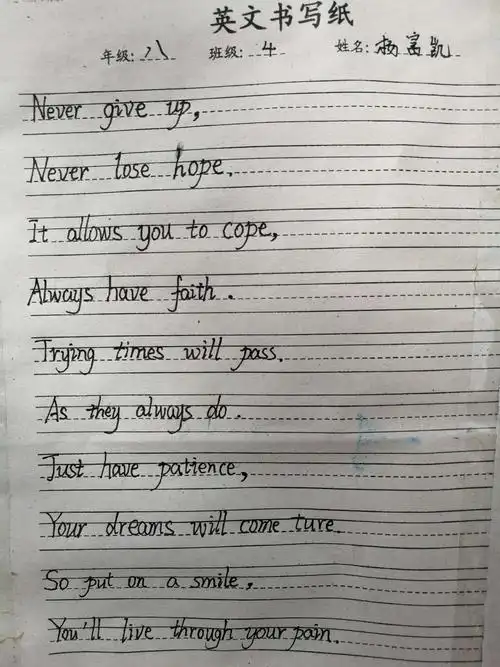 英文书写纸
年级: 八 班级: 4 姓名: 杨富凯
Never give up,
Never lose hope.
It allows you to cope,
Always have faith.
Trying times will pass.
As they always do.
Just have patience,
Your dreams will come ture.
So put on a smile,
You'll live through your pain.